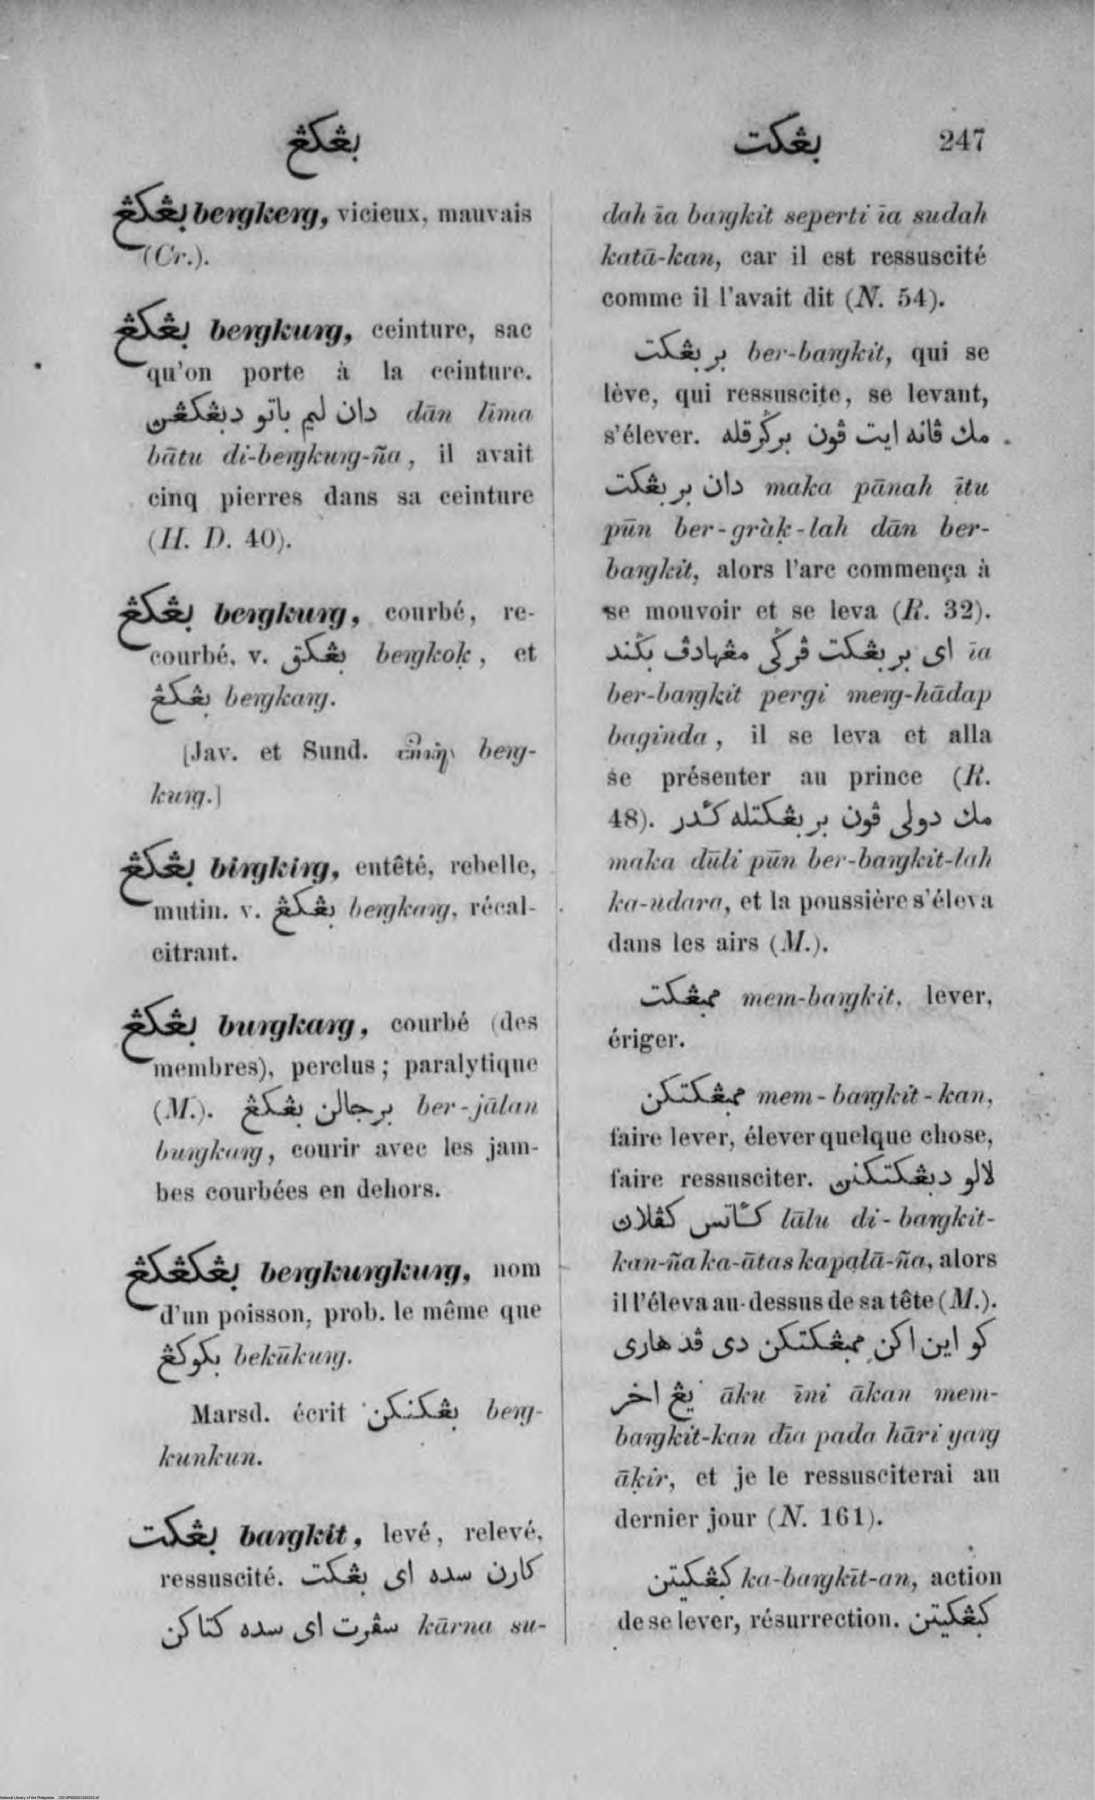 بڠكڠ
بڠكت 247
بڠكڠ beŋkeŋ, vicieux, mauvais
(Cr.).
بڠكڠ beŋkuŋ, ceinture, sac
qu'on porte à la ceinture.
دان ليم باتو دبڠكڠن dān līma
bātu di-beŋkuŋ-ña, il avait
cinq pierres dans sa ceinture
(H. D. 40).
بڠكڠ beŋkuŋ, courbé, re-
courbé. v. بڠكق beŋkoḳ, et
بڠكڠ beŋkaŋ.
[Jav. et Sund. beŋ-
kuŋ.]
بڠكڠ biŋkiŋ, entêté, rebelle,
mutin. v. بڠكڠ beŋkaŋ, récal-
citrant.
بڠكڠ buŋkaŋ, courbé (des
membres), perclus; paralytique
(M.). برجالن بڠكڠ ber-jālan
buŋkaŋ, courir avec les jam-
bes courbées en dehors.
بڠكڠكڠ beŋkuŋkuŋ, nom
d'un poisson, prob. le même que
بكوكڠ bekūkuŋ.
Marsd. écrit بڠكنكن beŋ-
kunkun.
بڠكت baŋkit, levé, relevé,
ressuscité. كارن سده اى بڠكت
سڤرت اى سده كتاكن kārna su-
dah īa baŋkit seperti īa sudah
katā-kan, car il est ressuscité
comme il l'avait dit (N. 54).
بربڠكت ber-baŋkit, qui se
lève, qui ressuscite, se levant,
s'élever. مك ڤانه ايت ڤون برݢرقله
دان بربڠكت maka pānah ītu
pūn ber-gràḳ-lah dān ber-
baŋkit, alors l'arc commença à
se mouvoir et se leva (R. 32).
اى بربڠكت ڤرݢى مڠهادڤ بݢند īa
ber-baŋkit pergi meŋ-hādap
baginda, il se leva et alla
se présenter au prince (R.
48). مك دولى ڤون بربڠكتله كأدر
maka dūli pūn ber-baŋkit-lah
ka-udara, et la poussière s'éleva
dans les airs (M.).
ممبڠكت mem-baŋkit, lever,
ériger.
ممبڠكتكن mem-baŋkit-kan,
faire lever, élever quelque chose,
faire ressusciter. لالو دبڠكتكنن
كأاتس كڤلان lālu di-baŋkit-
kan-ña ka-ātas kapalā-ña, alors
il l'éleva au-dessus de sa tête (M.).
كو اين اكن ممبڠكتكن دى ڤد هارى
يڠ اخر āku īni ākan mem-
baŋkit-kan dīa pada hāri yaŋ
āḳir, et je le ressusciterai au
dernier jour (N. 161).
كبڠكيتن ka-baŋkīt-an, action
de se lever, résurrection. كبڠكيتن